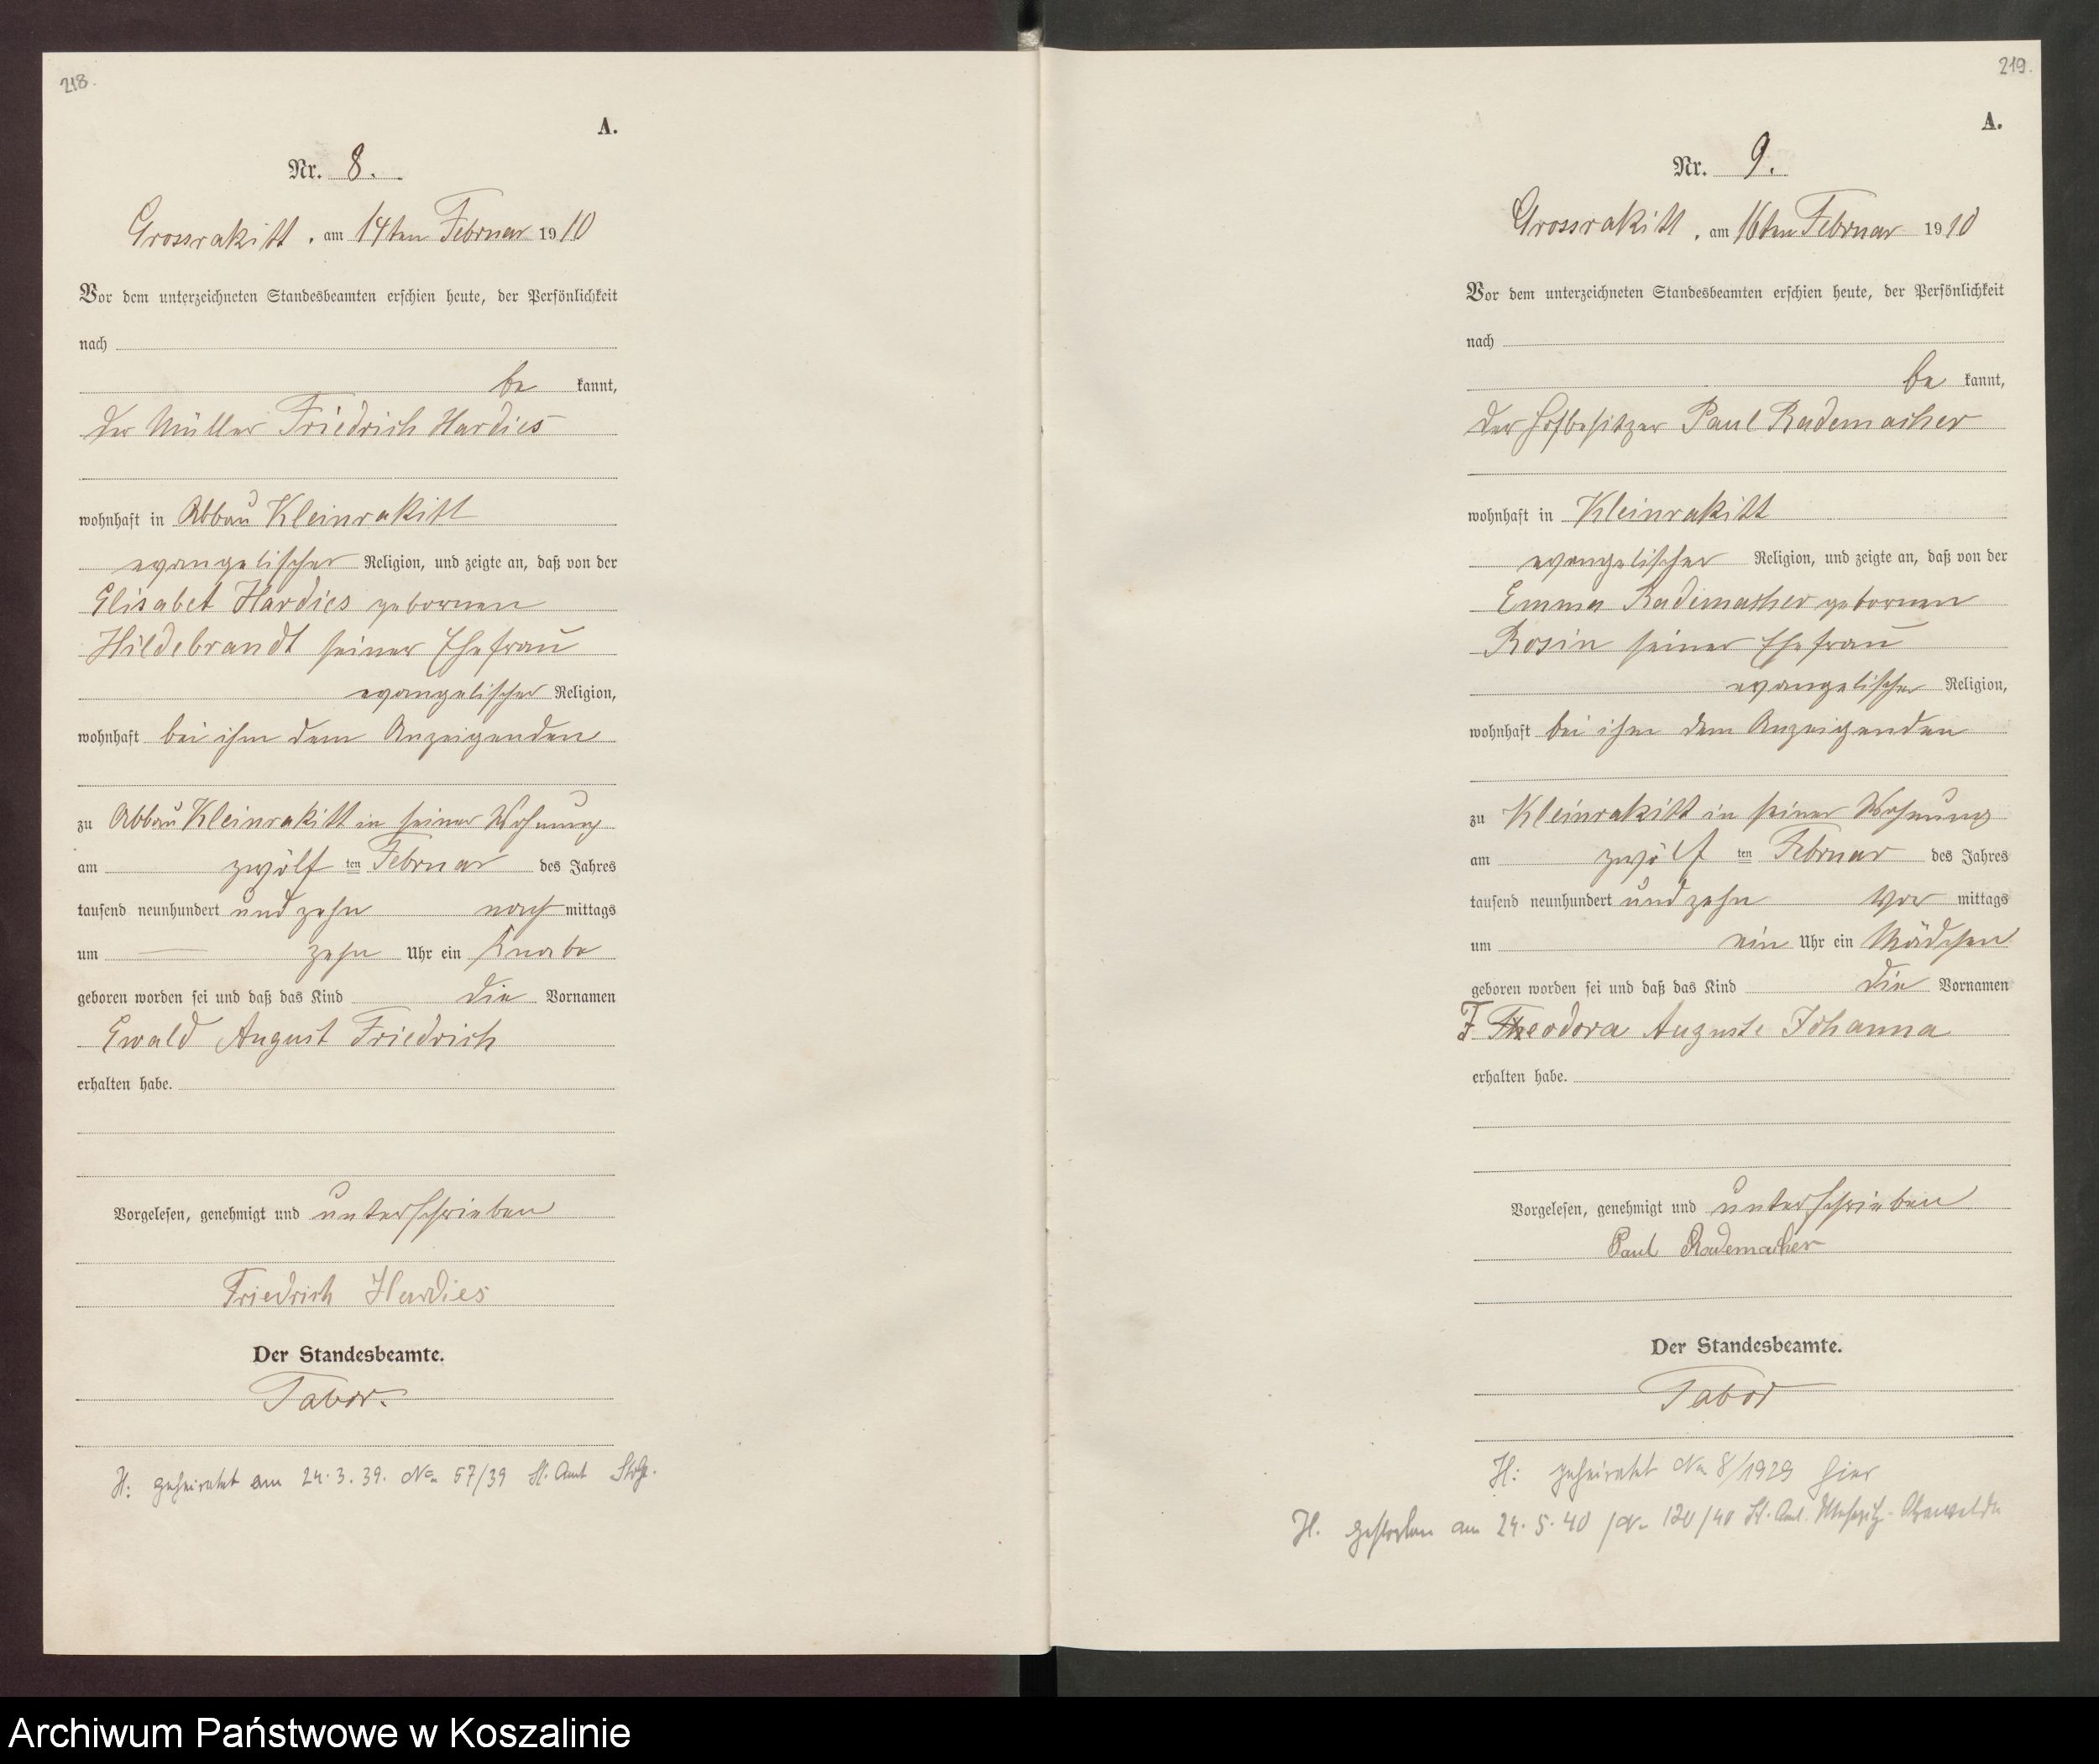 218.
A.
Nr. 8.
Grossrakitt, am 14ten Februar 1910
Vor dem unterzeichneten Standesbeamten erschien heute, der Persönlichkeit
nach
be kannt,
der Müller Friedrich Hardies
wohnhaft in Abbau Kleinrakitt
evangelischer Religion, und zeigte an, daß von der
Elisabet Hardies gebornen
Hildebrandt seiner Ehefrau
evangelischer Religion,
wohnhaft bei ihm dem Anzeigenden
zu Abbau Kleinrakitt in seiner Wohnung
am zwölf ten Februar des Jahres
tausend neunhundert und zehn nach mittags
um zehn Uhr ein Knabe
geboren worden sei und daß das Kind die Vornamen
Ewald August Friedrich
erhalten habe.
Vorgelesen, genehmigt und unterschrieben
Friedrich Hardies
Der Standesbeamte.
Tabor.
H: geheiratet am 24.3.39. No 57/39 St. Amt Stolp.
219.
A.
Nr. 9.
Grossrakitt, am 16ten Februar 1910
Vor dem unterzeichneten Standesbeamten erschien heute, der Persönlichkeit
nach
be kannt,
der Hofbesitzer Paul Rademacher
wohnhaft in Kleinrakitt
evangelischer Religion, und zeigte an, daß von der
Emma Rademacher gebornen
Rosin seiner Ehefrau
evangelischer Religion,
wohnhaft bei ihm dem Anzeigenden
zu Kleinrakitt in seiner Wohnung
am zwölf ten Februar des Jahres
tausend neunhundert und zehn Vor mittags
um ein Uhr ein Mädchen
geboren worden sei und daß das Kind die Vornamen
F Theodora Auguste Johanna
erhalten habe.
Vorgelesen, genehmigt und unterschrieben
Paul Rademacher
Der Standesbeamte.
Tabor
H: geheiratet No 8/1929 hier
H. gestorben am 24.5.40 /No 120/40 St. Amt. Meseritz-Obrawalde
Archiwum Państwowe w Koszalinie